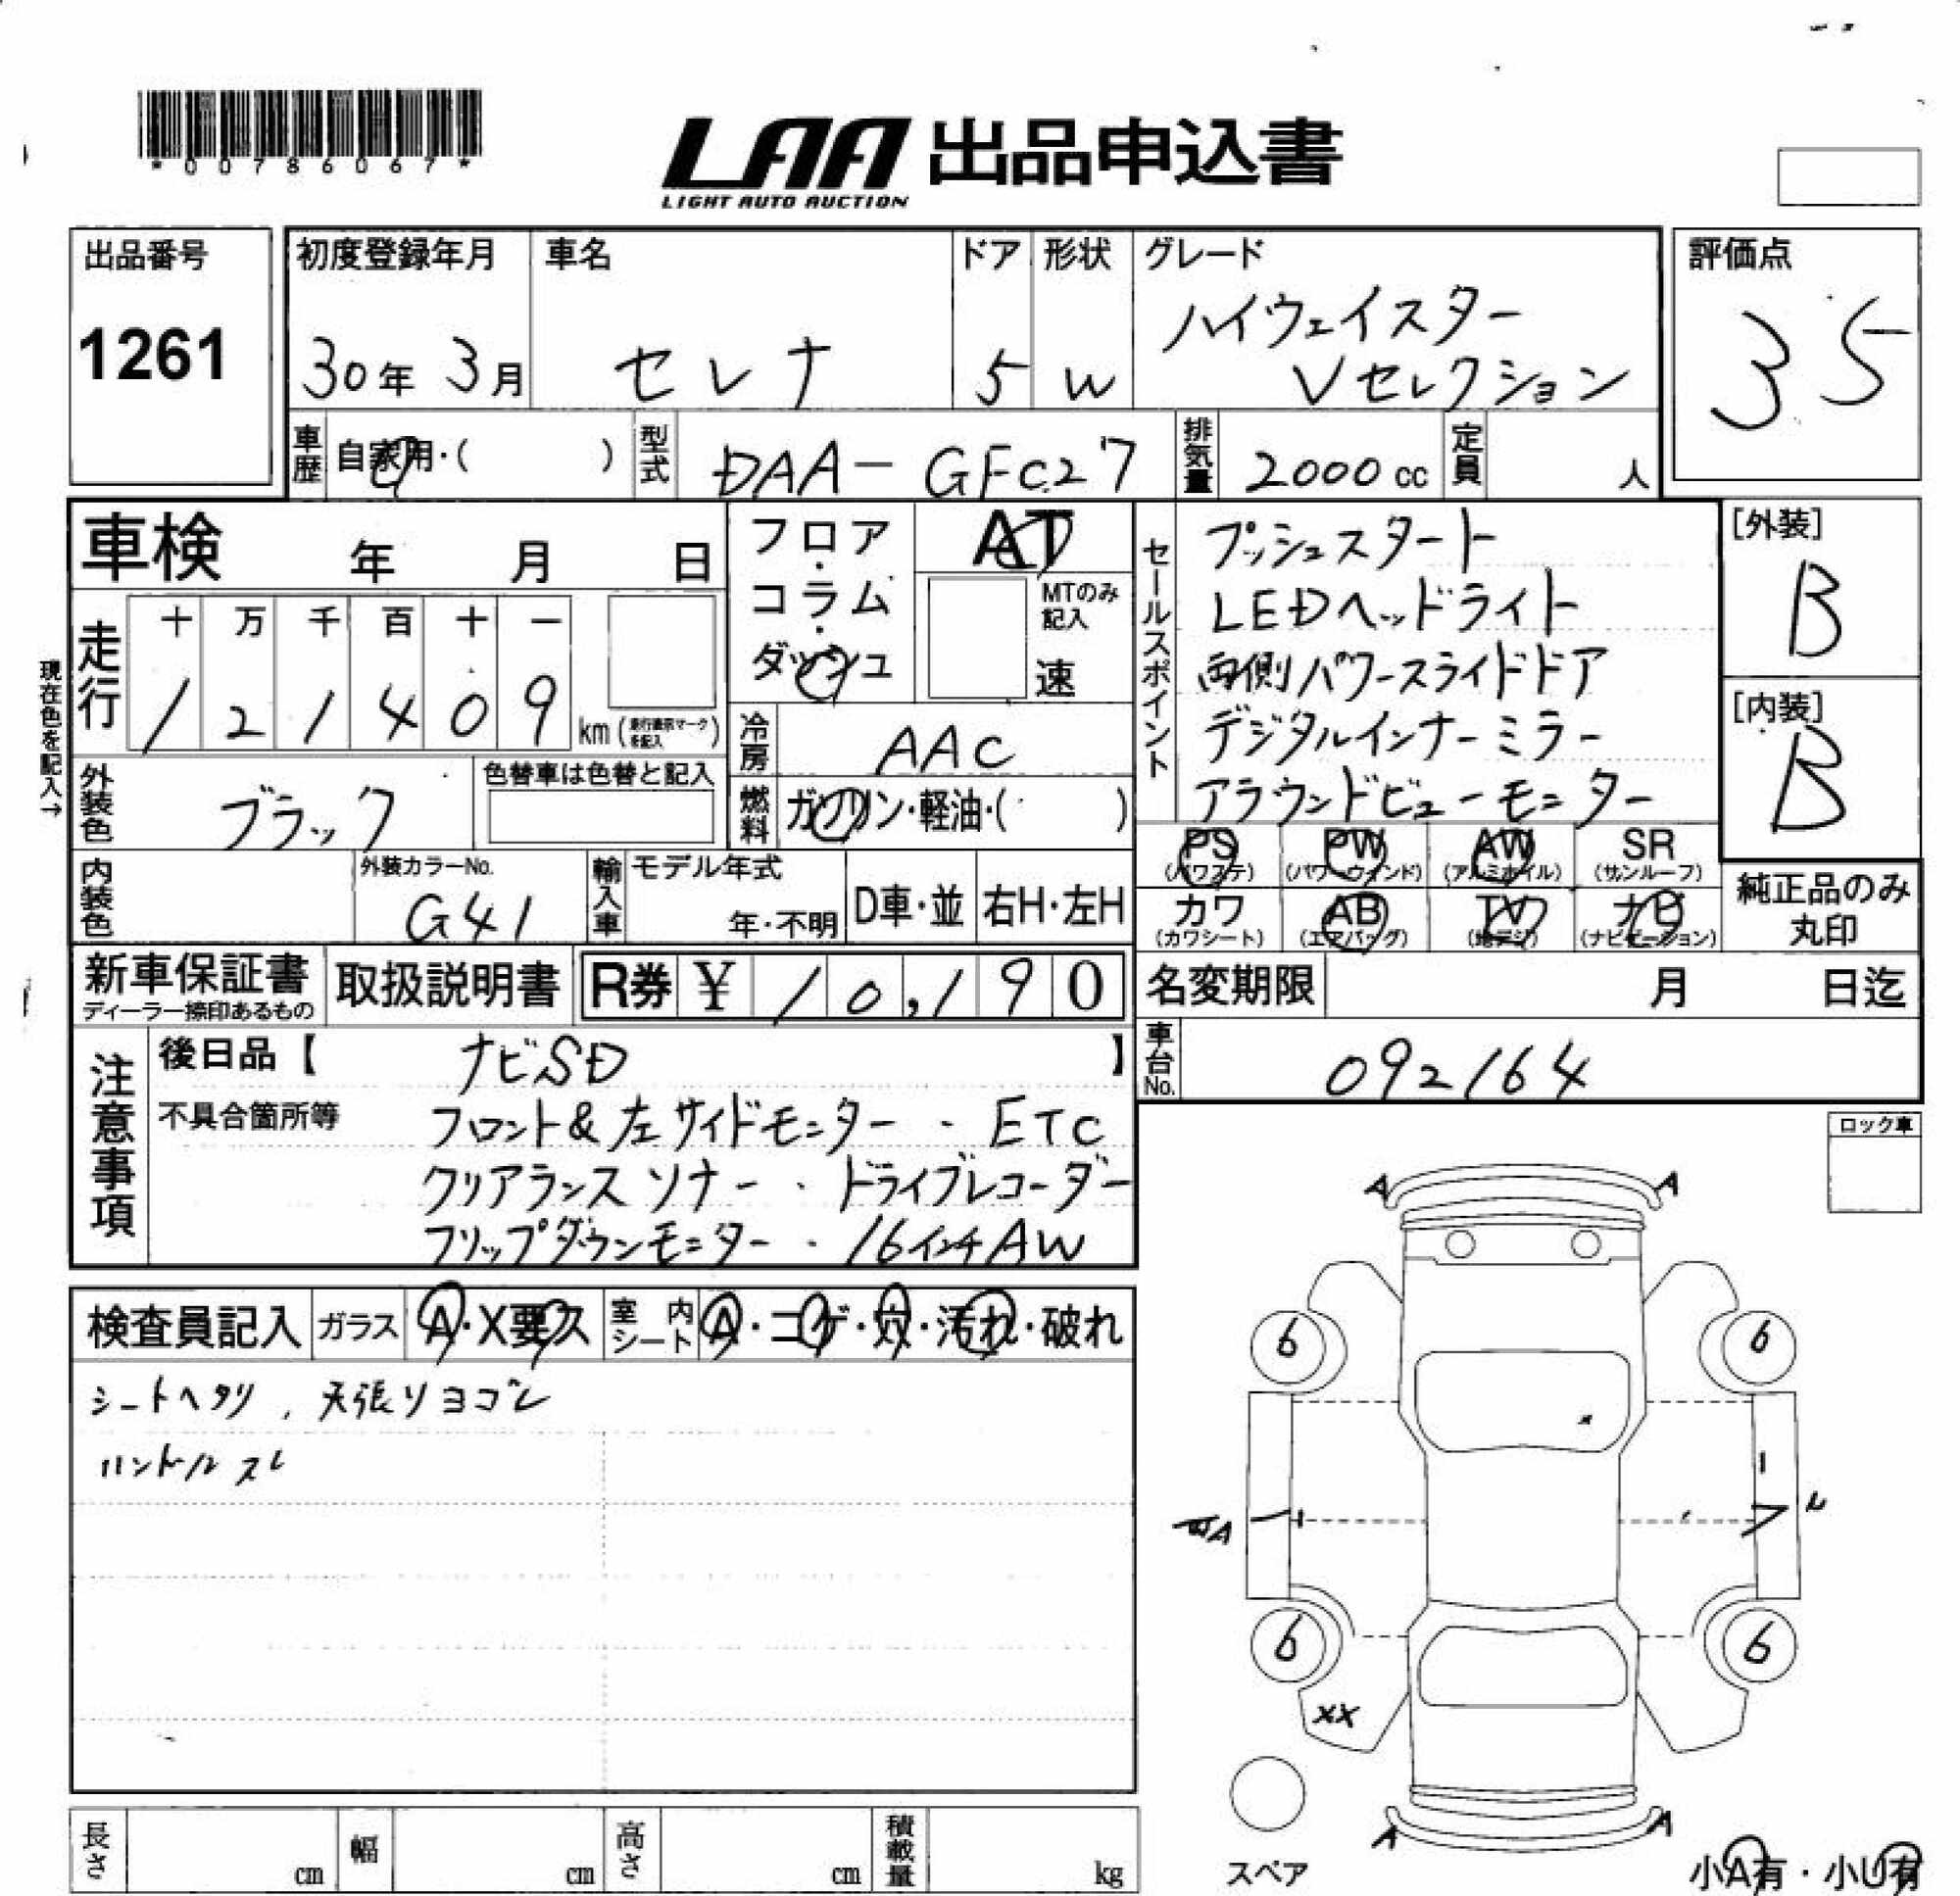 *00786067*
LAA 出品申込書
LIGHT AUTO AUCTION
出品番号
1261
初度登録年月
30年 3月
車名
セレナ
ドア
5
形状
W
グレード
ハイウェイスター
Vセレクション
評価点
35
車歴 自家用・( )
型式 DAA-GFC27
排気量 2000 cc
定員 人
車検 年 月 日
現在色を記入→
走行 十 万 千 百 十 一
1 2 1 4 0 9 km (走行表示マークを記入)
フロア・コラム・ダッシュ
AT
MTのみ記入
速
冷房 AAC
燃料 ガソリン・軽油・( )
外装色 ブラック
色替車は色替と記入
内装色
外装カラーNo.
G41
輸入車
モデル年式
年・不明
D車・並
右H・左H
セールスポイント
プッシュスタート
LEDヘッドライト
両側パワースライドドア
デジタルインナーミラー
アラウンドビューモニター
[外装]
B
[内装]
B
PS (パワステ)
PW (パワーウィンド)
AW (アルミホイル)
SR (サンルーフ)
カワ (カワシート)
AB (エアバッグ)
TV (地デジ)
ナビ (ナビゲーション)
純正品のみ
丸印
新車保証書
ディーラー捺印あるもの
取扱説明書
R券 ¥ 10,190
名変期限 月 日迄
車台No. 092164
注意事項
後日品【 ナビSD 】
不具合箇所等
フロント&左サイドモニター ・ ETC
クリアランスソナー ・ ドライブレコーダー
フリップダウンモニター ・ 16インチAW
ロック車
検査員記入
ガラス A・X要ス
室内シート A・コゲ・穴・汚れ・破れ
シートヘタリ, 天張リヨゴレ
ハンドルスレ
A A
6 6
A
6 6
XX
A A
スペア
小A有・小U有
長さ cm
幅 cm
高さ cm
積載量 kg